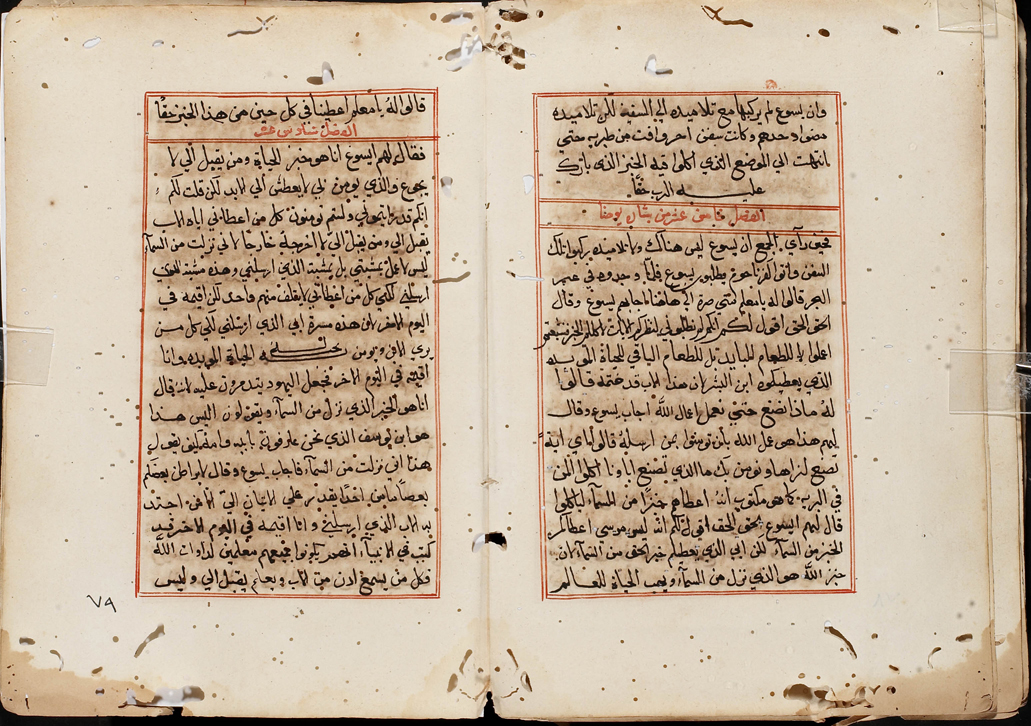 وان يسوع لم يركبها مع تلاميذه الي السفينه لكن تلاميذه
مضوا وحدهم وكانت سفن اخر وافت من طبريه حتي
انتهت الي الموضع الذي اكلوا فيه الخبز الذي بارك
عليه الرب حقًا
الفصل خامس عشر من بشاره يوحنا
فحين رأي الجمع ان يسوع ليس هناك ولا تلاميذه ركبوا تلك
السفن واتوا كفرناحوم يطلبون يسوع فلما وجدوه في عبر
البحر قالوا له يا معلم متي صرت الي هاهنا اجابهم يسوع وقال
الحق الحق اقول لكم انكم لم تطلبوني لنظركم الايات بل لاكلكم الخبز فشبعتم
اعملوا لا للطعام البايد بل للطعام الباقي للحياة المؤبده
الذي يعطيكموه ابن البشر لان هذا الاب قد ختمه قالوا
له ماذا نصنع حتي نعمل اعمال الله اجاب يسوع وقال
لهم هذا هو عمل الله بأن تومنوا بمن ارسله قالوا اي اية
تصنع لنراها ونومن بك ما الذي تصنع اباونا اكلوا المن
في البريه كما هو مكتوب انه اعطاهم خبزًا من السمآء لياكلوا
قال لهم ايسوع الحق الحق اقول لكم انه ليس موسي اعطاكم
الخبز من السمآء لكن ابي الذي يعطيكم خبز الحق من السمآء لان
خبز الله هو الذي نزل من السمآء ويهب الحياة للعالم
قالوا له يا معلم اعطنا في كل حين من هذا الخبز حقًا
الفصل سادس عشر
فقال لهم ايسوع انا هو خبز الحياة ومن يقبل الي لا
يجوع والذي يومن بي لا يعطش الي الابد لكن قلت لكم
انكم قد رايتموني ولستم تومنون كل من اعطاني اياه الاب
يقبل الي ومن يقبل الي لا اخرجه خارجا لاني نزلت من السمآء
ليس لاعمل بمشيتي بل بمشية الذي ارسلني وهذه مشية الذي
ارسلني لكي كل من اعطاني لا يتلف منهم واحد لكن اقيمه في
اليوم الاخر لان هذه مسرة ابي الذي ارسلني لكي كل من
يري الابن ويومن به الحياة المؤبده وانا
اقيمه في اليوم الاخر فجعل اليهود يتذمرون عليه لانه قال
انا هو الخبز الذي نزل من السمآء ويقولون اليس هذا
هو ابن يوسف الذي نحن عارفون بابيه وامه فكيف يقول
هذا اني نزلت من السمآء فاجاب يسوع وقال لا يراطن بعضكم
بعضًا ما من احدًا يقدر علي الاتيان الي الا من اجتذبه
الاب الذي ارسلني وانا اقيمه في اليوم الاخر قد
كتب في الانبيآء انهم يكونوا جميعهم معلمين الله
فكل من يسمع اذن من الاب ويعلم يقبل الي وليس
٧٩